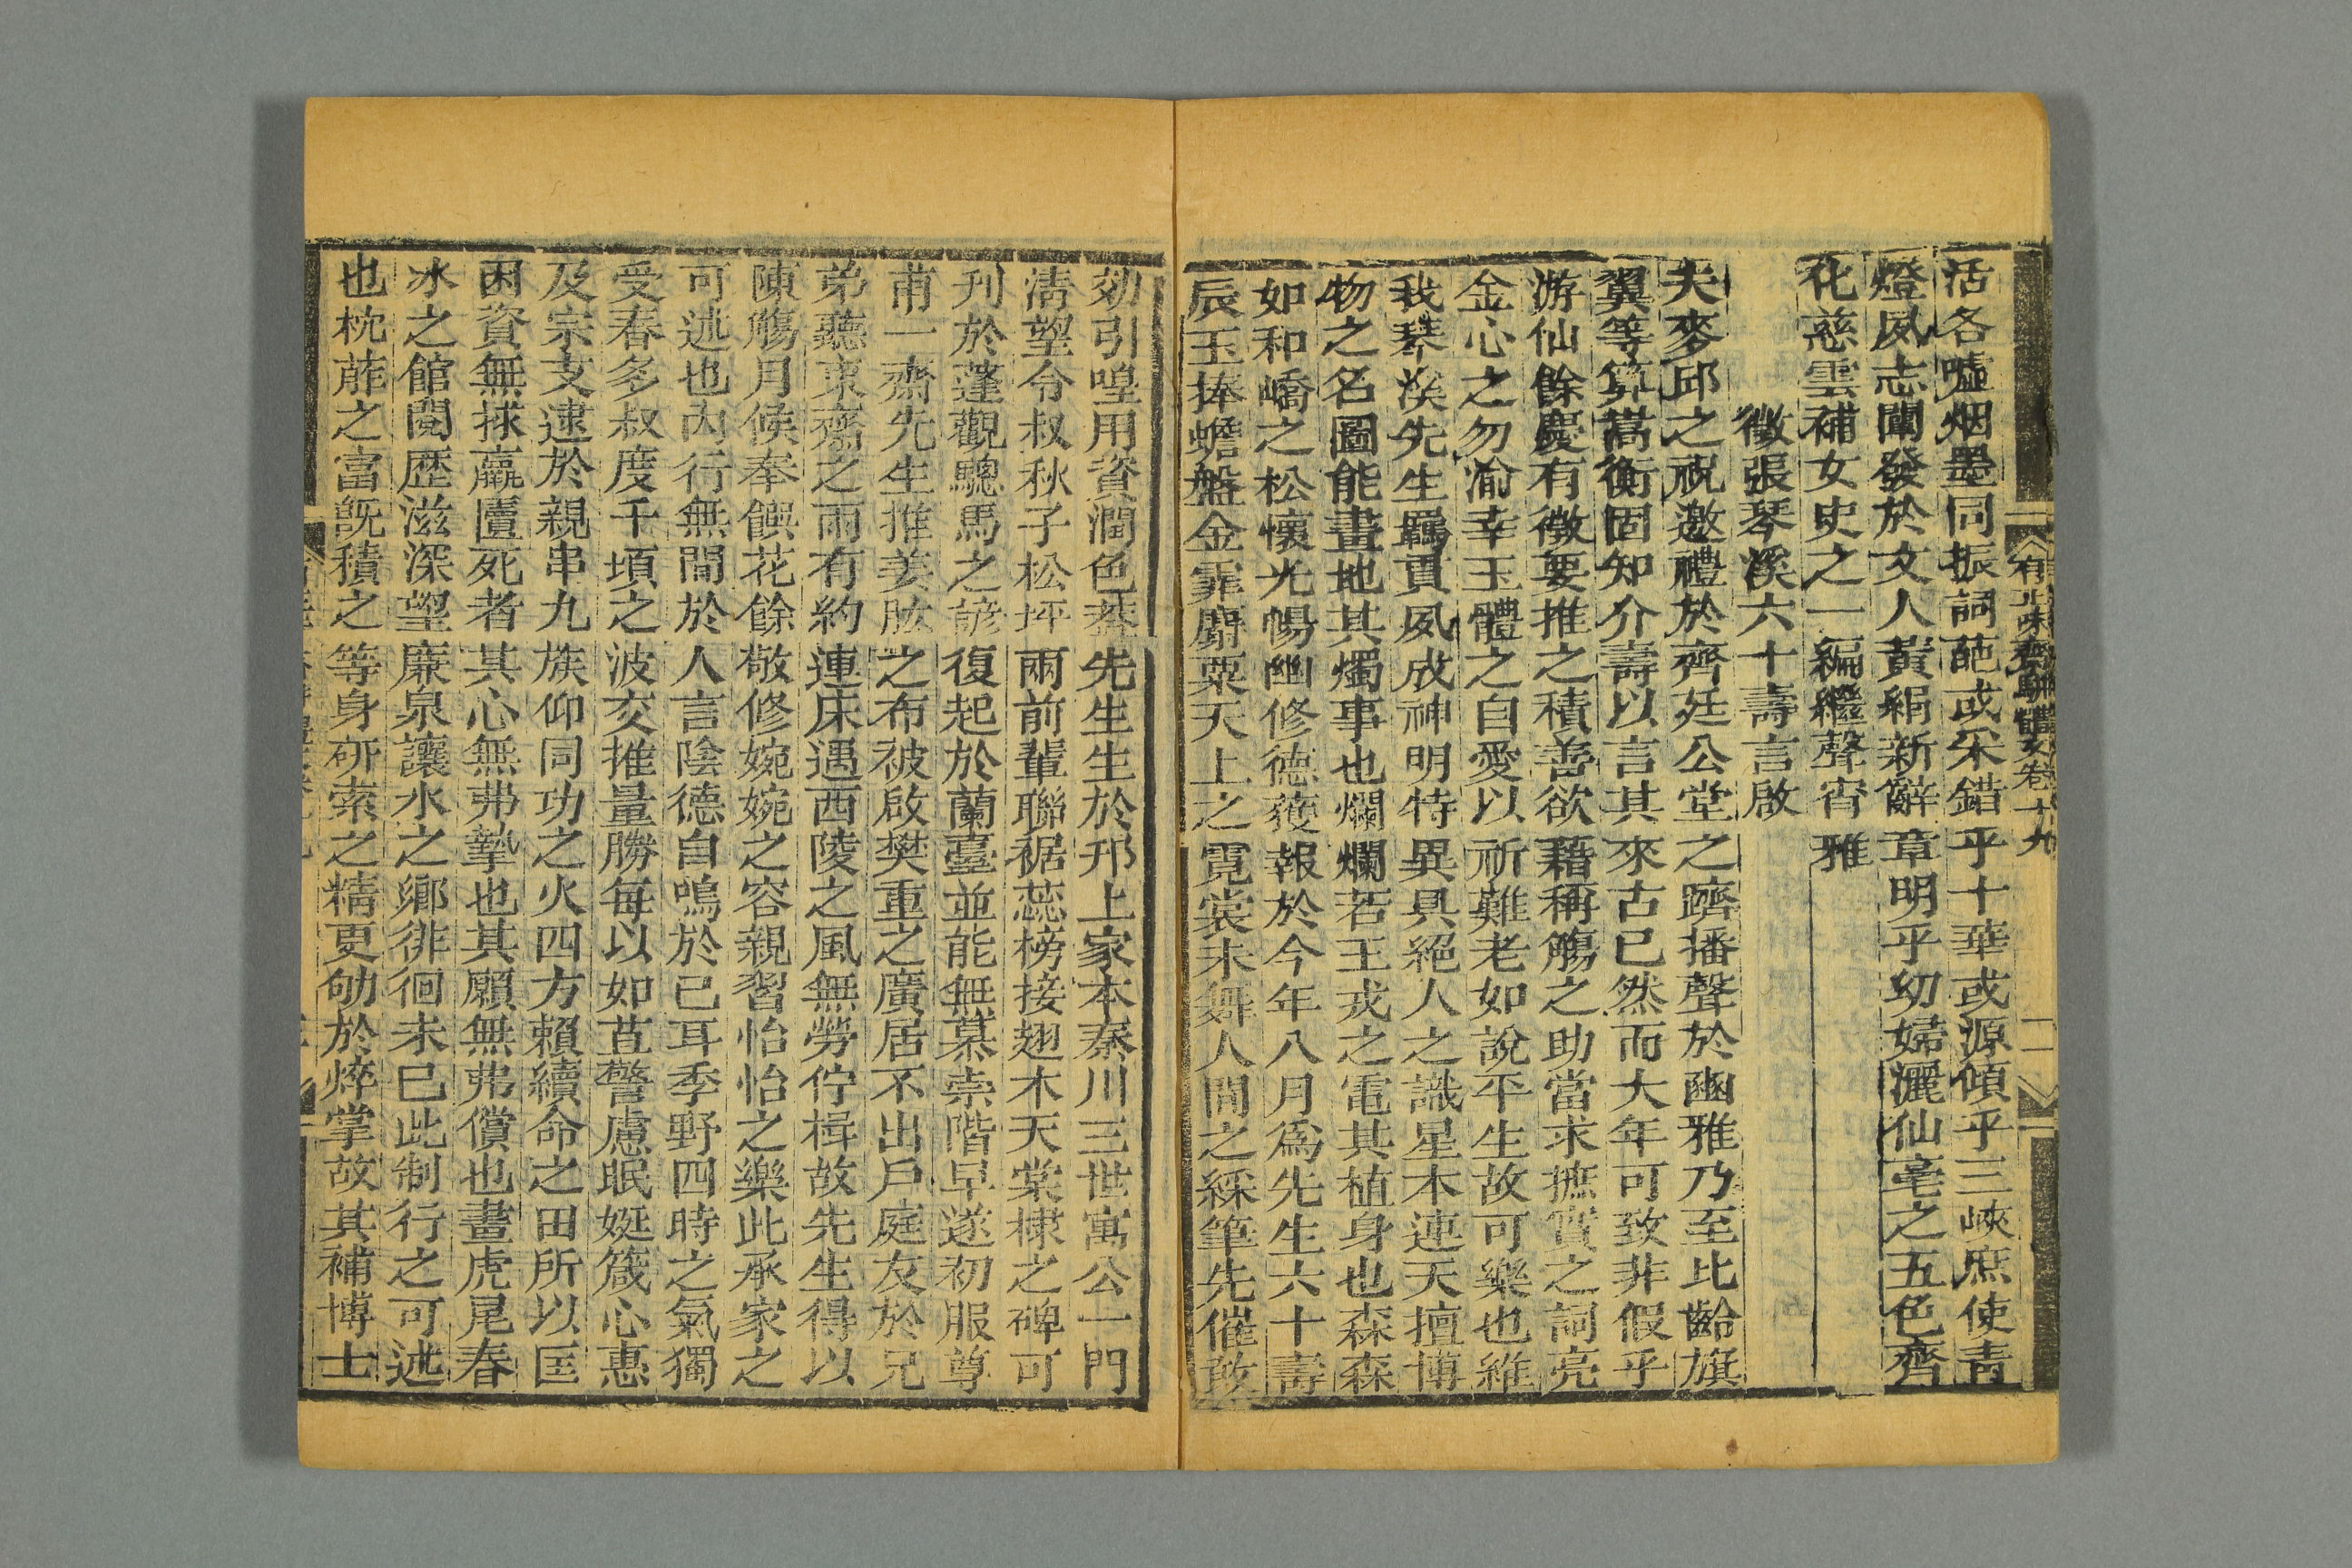 有正味齋駢體文卷十九
二
活各噓烟墨同振詞葩或采錯乎十華或源傾乎三峽庶使青
燈夙志闡發於文人黃絹新辭章明乎幼婦灑仙毫之五色齊
化慈雲補女史之一編繼聲宵雅
徵張琴溪六十壽言啟
夫麥邱之祝邀禮於齊廷公堂之躋播聲於豳雅乃至比齡旗
翼等算嵩衡固知介壽以言其來古已然而大年可致非假乎
游仙餘慶有徵要推之積善欲藉稱觴之助當求摭實之詞亮
金心之勿渝幸玉體之自愛以祈難老如說平生故可樂也維
我琴溪先生羈貫夙成神明特異具絕人之識星本連天擅博
物之名圖能畫地其燭事也爛爛若王戎之電其植身也森森
如和嶠之松懷光惕幽修德獲報於今年八月爲先生六十壽
辰玉捧蟾盤金霏麝粟天上之霓裳未舞人間之綵筆先催敢
効引喤用資潤色蓋先生生於邗上家本秦川三世寓公一門
淸望令叔秋子松坪兩前輩聯裾蕊榜接翅木天棠棣之碑可
刋於蓬觀驄馬之諺復起於蘭臺並能無慕崇階早遂初服尊
甫一齋先生推姜肱之布被啟樊重之廣居不出戶庭友於兄
弟聽東齋之雨有約連床遇西陵之風無勞佇楫故先生得以
陳觴月候奉饌花餘敬修婉婉之容親習怡怡之樂此承家之
可述也內行無間於人言陰德自鳴於已耳季野四時之氣獨
受春多叔度千頃之波交推量勝每以如苴警慮眠娫箴心惠
及宗支逮於親串九族仰同功之火四方賴續命之田所以匡
困資無拯羸匱死者其心無弗摯也其願無弗償也晝虎尾春
冰之館閱歷滋深望廉泉讓水之鄉徘徊未已此制行之可述
也枕葄之富旣積之等身硏索之精更劬於焠掌故其補博士